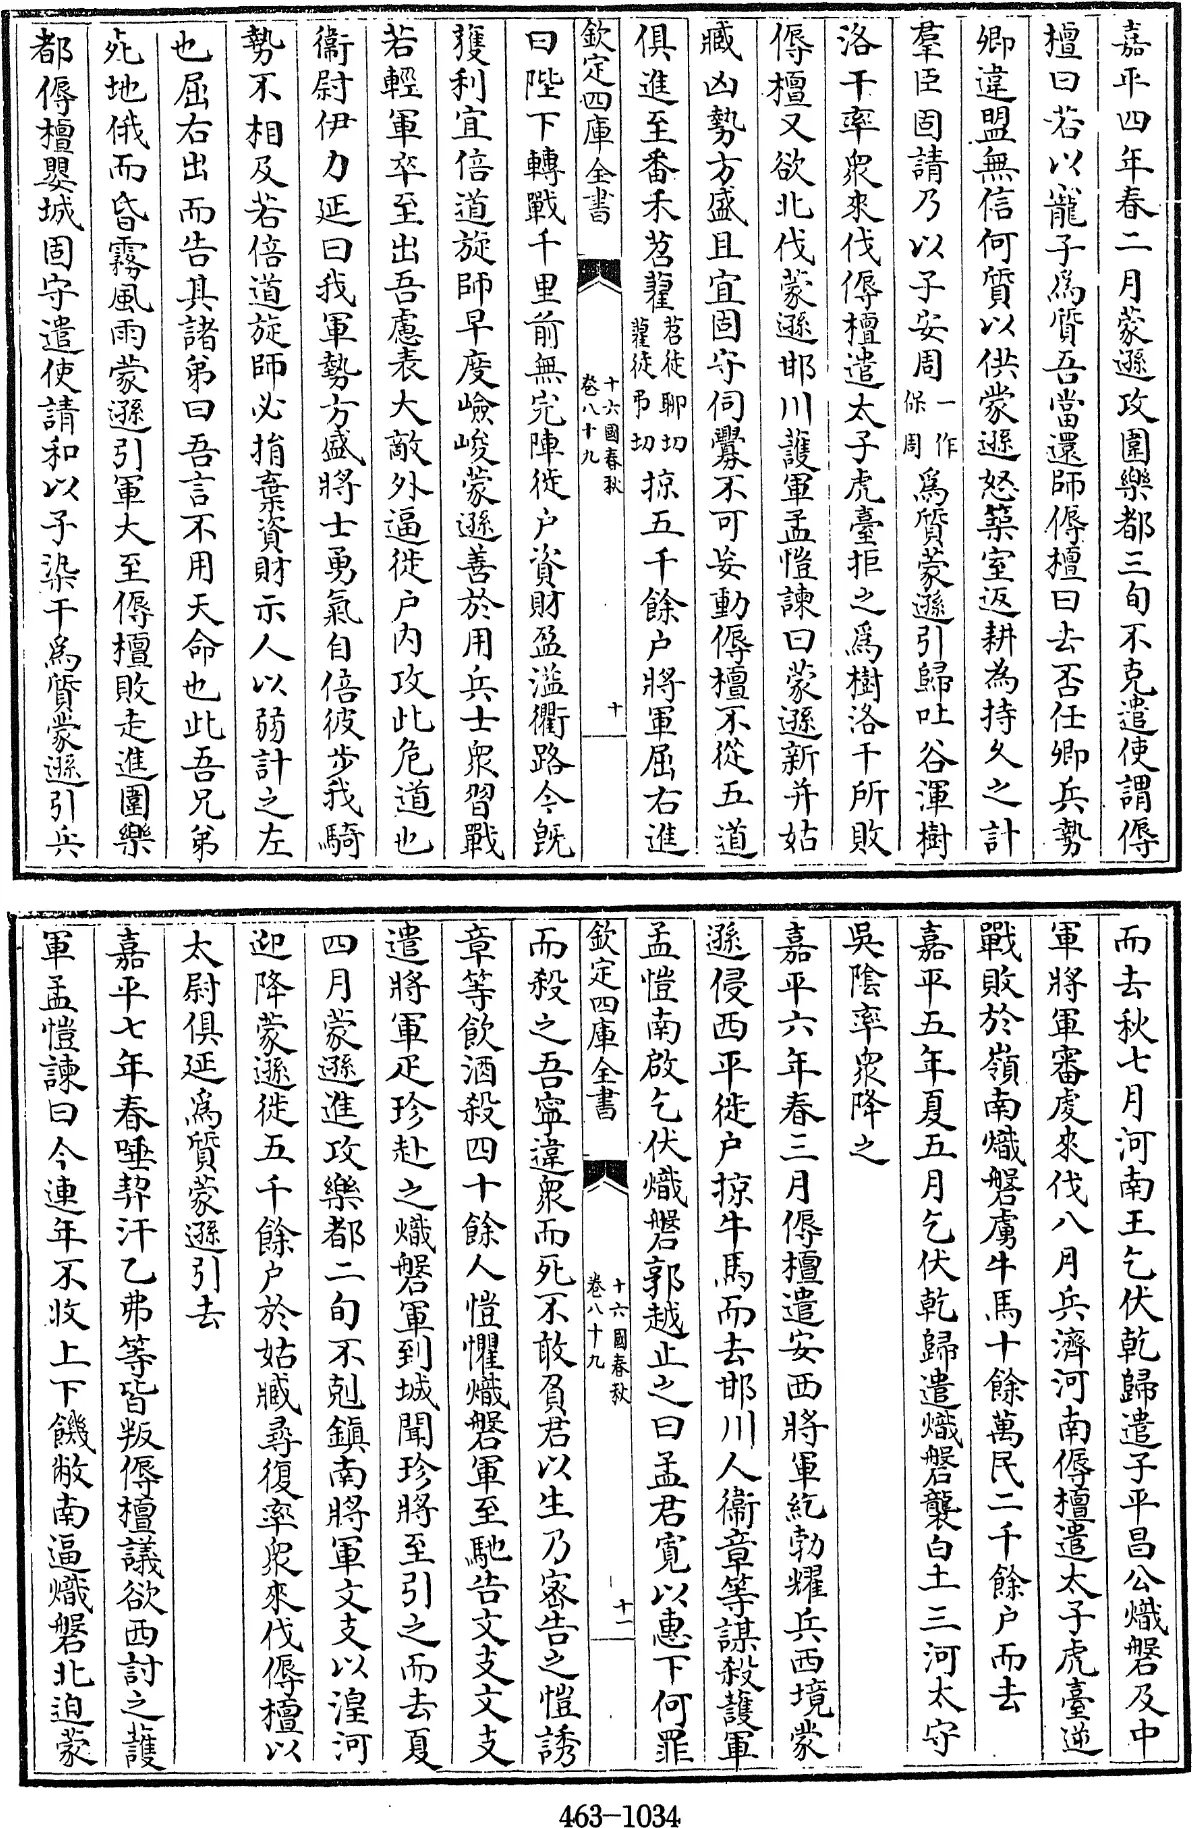 嘉平四年春二月蒙遜攻圍樂都三旬不克遣使謂傉
檀曰若以寵子爲質吾當還師傉檀曰去否任卿兵勢
卿違盟無信何質以供蒙遜怒築室返耕為持久之計
羣臣固請乃以子安周一作保周爲質蒙遜引歸吐谷渾樹
洛干率衆來伐傉檀遣太子虎臺拒之爲樹洛干所敗
傉檀又欲北伐蒙遜邯川護軍孟愷諫曰蒙遜新并姑
臧凶勢方盛且宜固守伺釁不可妄動傉檀不從五道
俱進至番禾苕藋苕徒聊切藋徒弔切掠五千餘户將軍屈右進
欽定四庫全書
十六國春秋
卷八十九
十
曰陛下轉戰千里前無完陣徙户資財盈溢衢路今旣
獲利宜倍道旋師早度嶮峻蒙遜善於用兵士衆習戰
若輕軍卒至出吾慮表大敵外逼徙户内攻此危道也
衞尉伊力延曰我軍勢方盛將士勇氣自倍彼步我騎
勢不相及若倍道旋師必捐棄資財示人以弱計之左
也屈右出而告其諸弟曰吾言不用天命也此吾兄弟
死地俄而昏霧風雨蒙遜引軍大至傉檀敗走進圍樂
都傉檀嬰城固守遣使請和以子染干爲質蒙遜引兵
而去秋七月河南王乞伏乾歸遣子平昌公熾磐及中
軍將軍審虔來伐八月兵濟河南傉檀遣太子虎臺逆
戰敗於嶺南熾磐虜牛馬十餘萬民二千餘户而去
嘉平五年夏五月乞伏乾歸遣熾磐襲白土三河太守
吳陰率衆降之
嘉平六年春三月傉檀遣安西將軍紇勃耀兵西境蒙
遜侵西平徙户掠牛馬而去邯川人衞章等謀殺護軍
孟愷南啟乞伏熾磐郭越止之曰孟君寬以惠下何罪
欽定四庫全書
十六國春秋
卷八十九
十一
而殺之吾寧違衆而死不敢負君以生乃密告之愷誘
章等飲酒殺四十餘人愷懼熾磐軍至馳告文支文支
遣將軍疋珍赴之熾磐軍到城聞珍將至引之而去夏
四月蒙遜進攻樂都二旬不剋鎮南將軍文支以湟河
迎降蒙遜徙五千餘户於姑臧尋復率衆來伐傉檀以
太尉俱延爲質蒙遜引去
嘉平七年春唾契汗乙弗等皆叛傉檀議欲西討之護
軍孟愷諫曰今連年不收上下饑敝南逼熾磐北迫蒙
463-1034